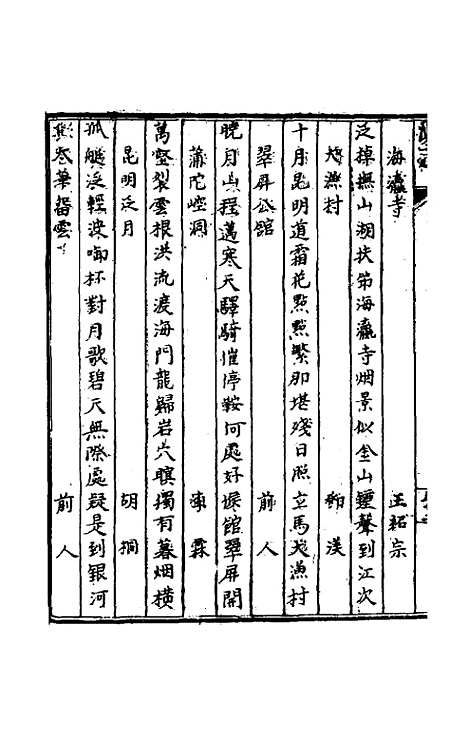 海瀛寺　王紹宗
泛棹橅山湖扶筇海瀛寺烟景似金山鐘聲到江次
漁村　鄧渼
十月昆明道霜花點點繁那堪殘日照立馬漁村
翠屏公館　前人
曉月山程邁寒天驛騎催停鞍何處好堠館翠屏開
蒲陀崆洞　霖
萬壑裂雲根洪流渡海門龍歸岩穴暝獨有暮烟橫
昆明泛月　胡
孤艇泛輕浪啣杯對月歌碧天無際處疑是到銀河
　前人